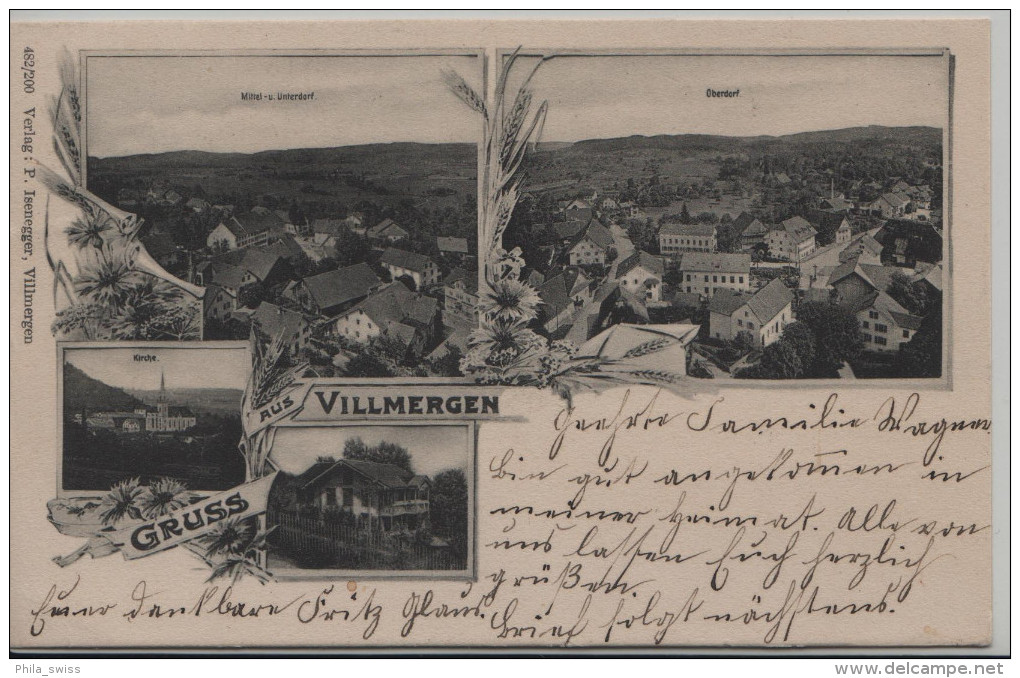 482/200 Verlag: P. Isenegger, Villmergen
Mittel- u. Unterdorf.
Oberdorf.
Kirche.
GRUSS
AUS VILLMERGEN
Geehrte Familie Wagner.
Bin gut angekom̄en in
meiner Heimat. Alle von
uns lassen Euch herzlich
grüßen.
Brief folgt nächstens.
Euer dankbare Fritz Glaus.
Phila_swiss
www.delcampe.net